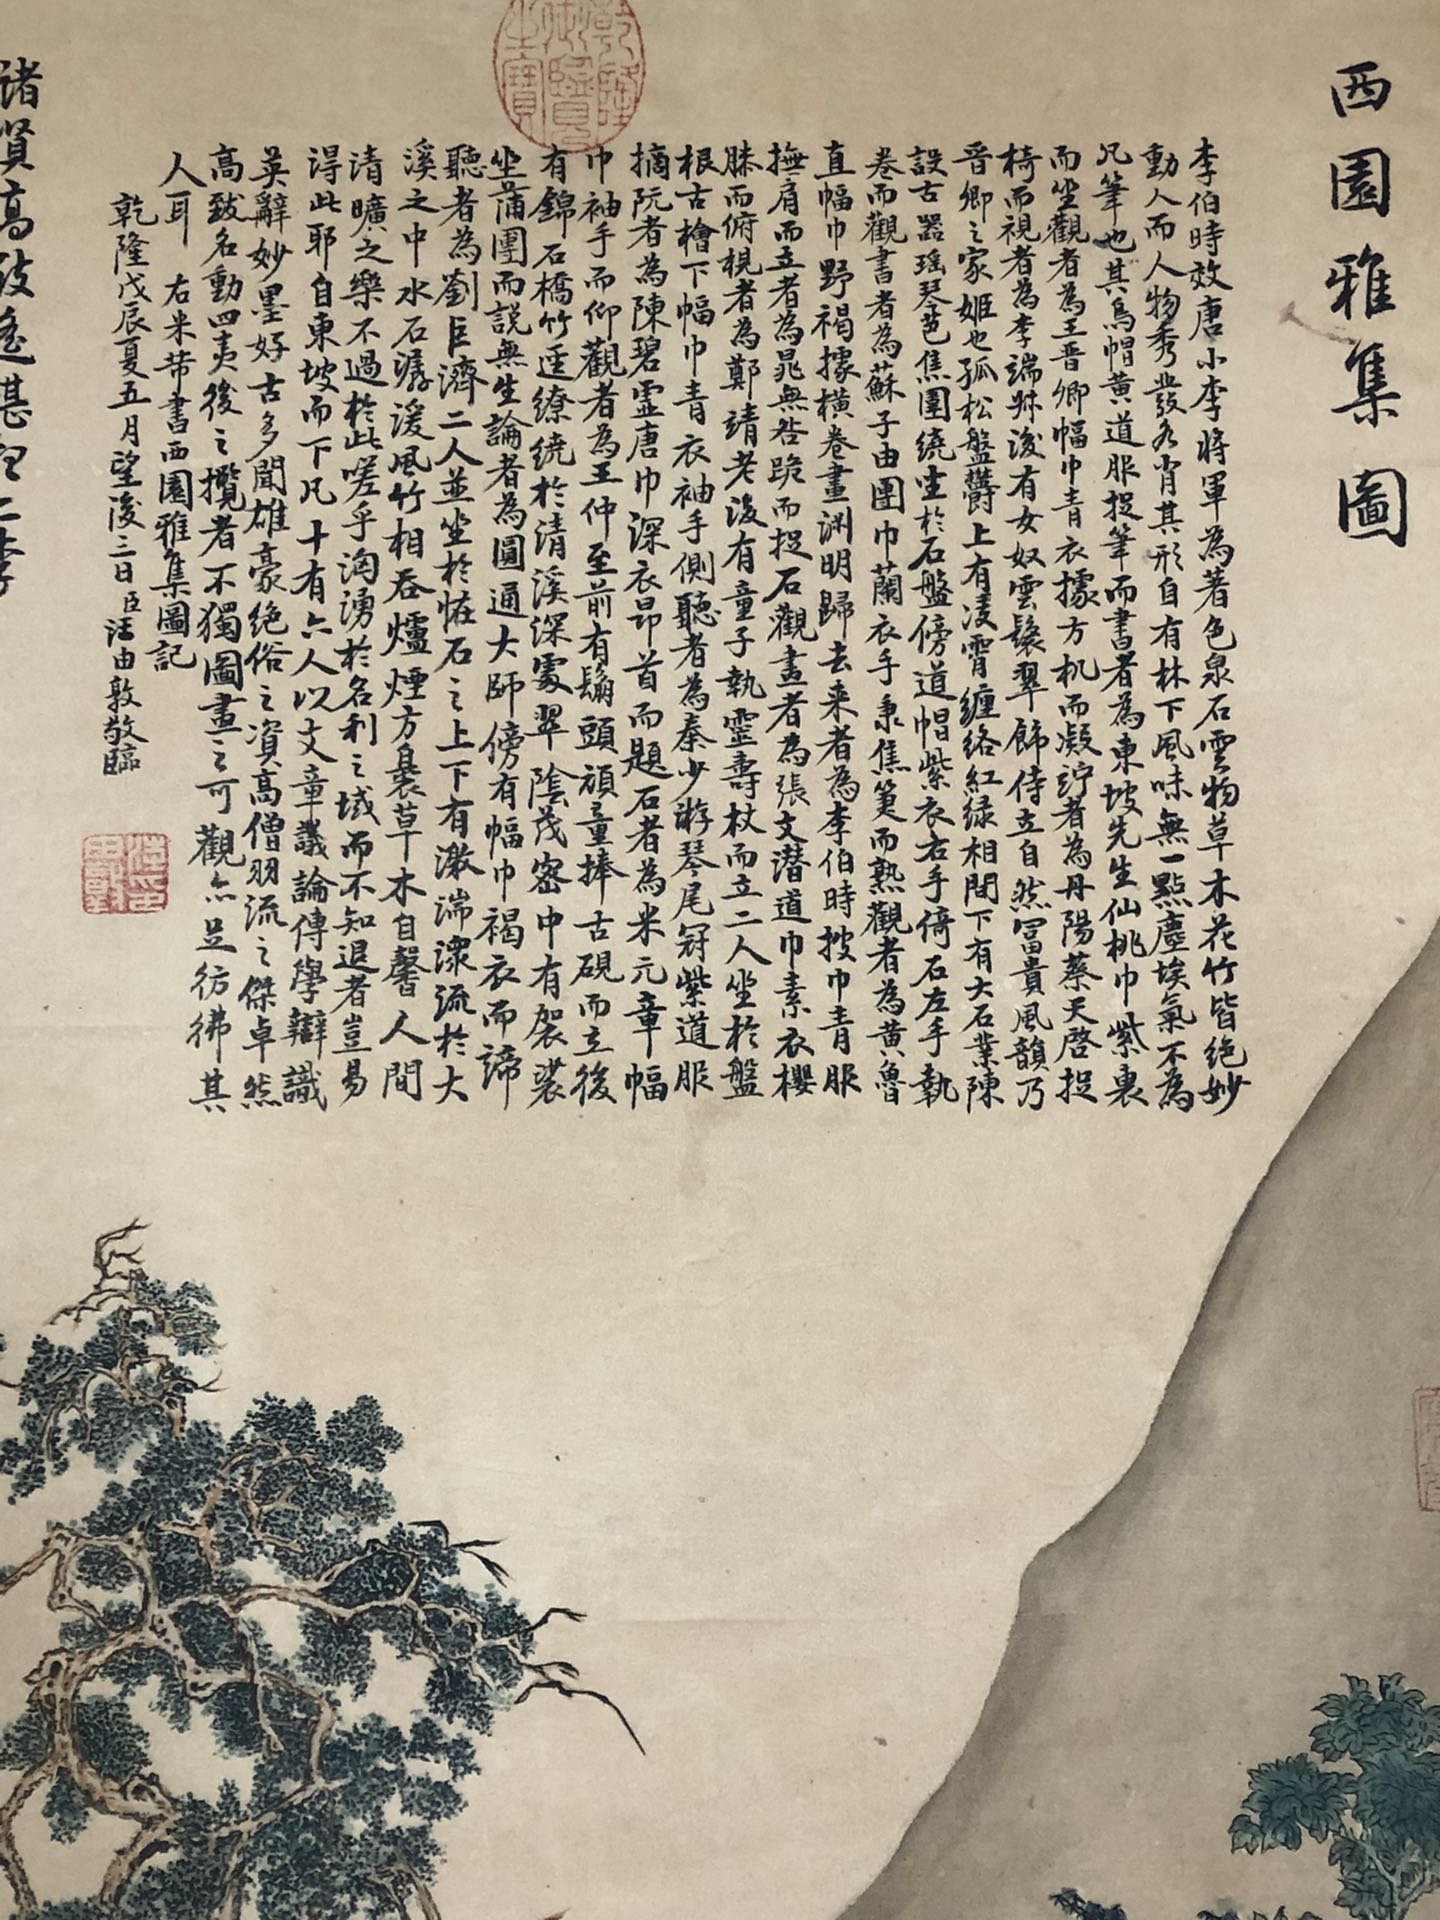 西園雅集圖
李伯時效唐小李將軍為著色泉石雲物草木花竹皆绝妙
動人而人物秀發各肖其形自有林下風味無一點塵埃氣不為
凡筆也其烏帽黄道服捉筆而書者為東坡先生仙桃巾紫裘
而坐觀者為王晋卿幅巾青衣據方机而凝竚者為丹陽蔡天啓捉
椅而視者為李端叔後有女奴雲鬟翠飾侍立自然富貴風韻乃
晋卿之家姬也孤松盤欝上有凌霄纏络紅绿相間下有大石案陳
設古器瑶琴芭焦圍繞坐於石盤傍道帽紫衣右手倚石左手執
卷而觀書者為蘇子由團巾蘭衣手秉焦箑而熟觀者為黄魯
直幅巾野褐據横卷畫渊明歸去来者為李伯時披巾青服
撫肩而立者為晁無咎跪而捉石觀畫者為張文潜道巾素衣櫻
膝而俯視者為鄭靖老後有童子執靈壽杖而立二人坐於盤
根古檜下幅巾青衣袖手側聽者為秦少游琴尾冠紫道服
摘阮者為陳碧虚唐巾深衣昂首而題石者為米元章幅
巾袖手而仰觀者為王仲至前有鬅頭頑童捧古硯而立後
有錦石橋竹逕繚繞於清溪深處翠陰茂密中有袈裟
坐蒲團而說無生論者為圓通大師傍有幅巾褐衣而諦
聽者為劉巨濟二人並坐於恠石之上下有激湍潨流於大
溪之中水石潺湲風竹相吞爐煙方裊草木自馨人間
清曠之樂不過於此嗟乎洶湧於名利之域而不知退者豈易
得此耶自東坡而下凡十有六人以文章議論傳學辯識
英辭妙墨好古多聞雄豪绝俗之資高僧羽流之傑卓然
高致名動四夷後之攬者不獨圖畫之可觀亦足彷彿其
人耳 右米芾書西園雅集圖記
乾隆戊辰夏五月望後三日臣汪由敦敬臨
乾隆御覽之寶